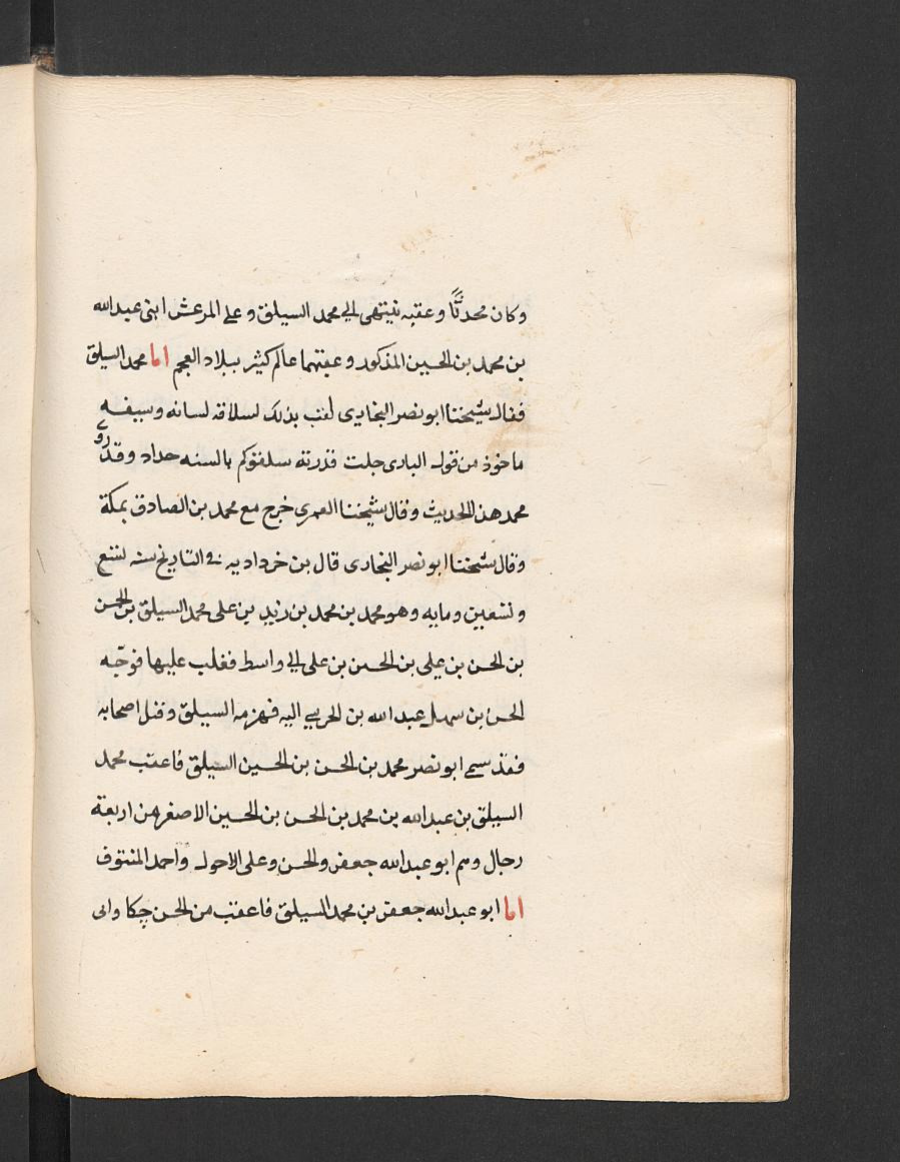 وكان محدثًا وعقبه ينتهى الى محمد السيلق وعلى المرعش ابنى عبدالله
بن محمد بن الحسين المذكور وعقبهما عالم كثير ببلاد العجم اما محمد السيلق
فقال شيخنا ابو نصر البخارى لقب بذلك لسلاقة لسانه وسيفه
ماخوذ من قول البارى جلت قدرته سلقوكم بالسنه حداد وقد روى
محمد هذا الحديث وقال شيخنا العمرى خرج مع محمد بن الصادق بمكة
وقال شيخنا ابو نصر البخارى قال بن خرداديه فى التاريخ سنه تسع
وتسعين ومايه وهو محمد بن محمد بن زيد بن على محمد السيلق بن الحسن
بن الحسن بن على بن الحسن بن على الى واسط فغلب عليها فوجّه
الحسن بن سهل عبدالله بن الحربى اليه فهزمه السيلق وقتل اصحابه
فقد سمى ابو نصر محمد بن الحسن بن الحسين السيلق فاعقب محمد
السيلق بن عبدالله بن محمد بن الحسن بن الحسين الاصغر من اربعة
رجال وهم ابو عبدالله جعفر والحسن وعلى الاحول واحمد المنتوف
اما ابو عبدالله جعفر بن محمد السيلق فاعقب من الحسن چكا وابى